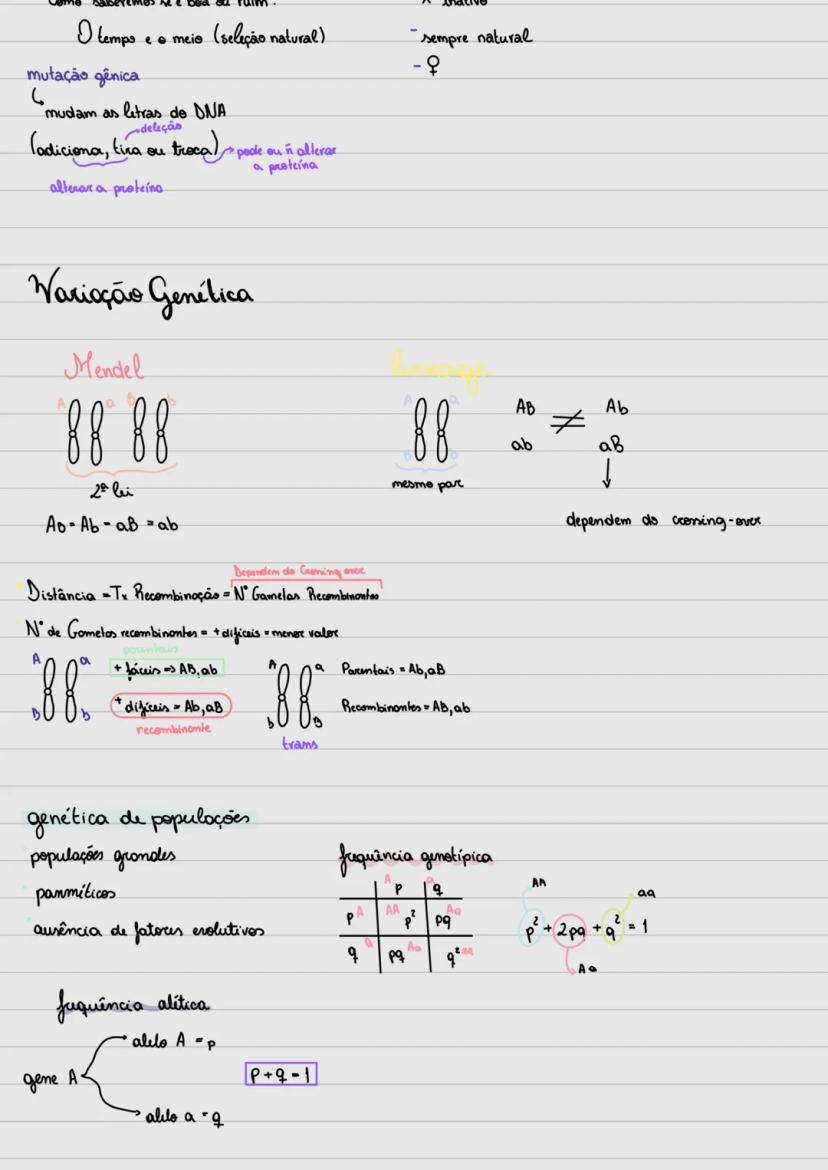 como saberemos se é boa ou ruim?
O tempo e o meio (seleção natural)
inativo
- sempre natural
- ♀
mutação gênica
mudam as letras do DNA
deleção
(adiciona, tira ou troca)
pode ou ñ alterar
a proteína
alterar a proteína
Variação Genética
Mendel
A a B b
2ª lei
AB = Ab = aB = ab
linkage
A a
B b
mesmo par
AB ≠ Ab
ab aB
dependem do crossing-over
Dependem do Crossing over
Distância = Tx Recombinação = Nº Gametas Recombinantes
Nº de Gametas recombinantes = + difíceis = menor valor
parentais
A a
+ fáceis => AB, ab
B b
+ difíceis = Ab, aB
recombinante
A a
b B
trans
Parentais = Ab, aB
Recombinantes = AB, ab
genética de populações
populações grandes
panmíticos
ausência de fatores evolutivos
frequência genotípica
A a
p q
p A AA p² pq Aa
q a pq Aa q² aa
AA aa
p² + 2pq + q² = 1
Aa
frequência alélica
gene A
alelo A = p
alelo a = q
p + q = 1